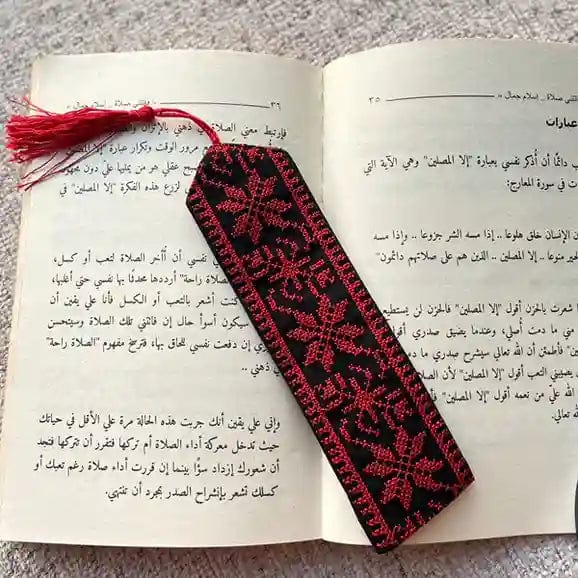 ٣٥ فاتتني صلاة .. إسلام جمال «
عبارات
دائمًا أن أُذكر نفسي بعبارة "إلا المصلين" وهي الآية التي
ت في سورة المعارج:
الإنسان خلق هلوعا .. إذا مسه الشر جزوعا .. وإذا مسه
الخير منوعا .. إلا المصلين .. الذين هم على صلاتهم دائمون"
شعرت بالحزن أقول "إلا المصلين" فالحزن لن يستطيع
مني ما دمت أُصلي، وعندما يضيق صدري أقول
" فأطمئن أن الله تعالى سيشرح صدري ما دمت
يصيبني التعب أقول "إلا المصلين" لأن الصلاة
الله علي من نعمه أقول "إلا المصلين"
تعالى.
فاتتني صلاة .. إسلام جمال « ٣٦
فارتبط معنى الصلاة في ذهني بالإتزان
مرور الوقت وتكرار عبارة "إلا المصلين"
صبح عقلي هو من يمليها علي دون مجهود
لزرع هذه الفكرة "إلا المصلين" في
نفسي أن أُأخر الصلاة لتعب أو كسل،
الصلاة راحة" أرددها محدثًا بها نفسي حتى أغلبها،
كنت أشعر بالتعب أو الكسل فأنا على يقين أن
سيكون أسوأ حال إن فاتتني تلك الصلاة وسيتحسن
إن دفعت نفسي للحاق بها، فترسخ مفهوم "الصلاة راحة"
في ذهني ..
وإني على يقين أنك جربت هذه الحالة مرة على الأقل في حياتك
حيث تدخل معركة أداء الصلاة أم تركها فتقرر أن تتركها فتجد
أن شعورك إزداد سوًا بينما إن قررت أداء صلاة رغم تعبك أو
كسلك تشعر بإنشراح الصدر بمجرد أن تنتهي.